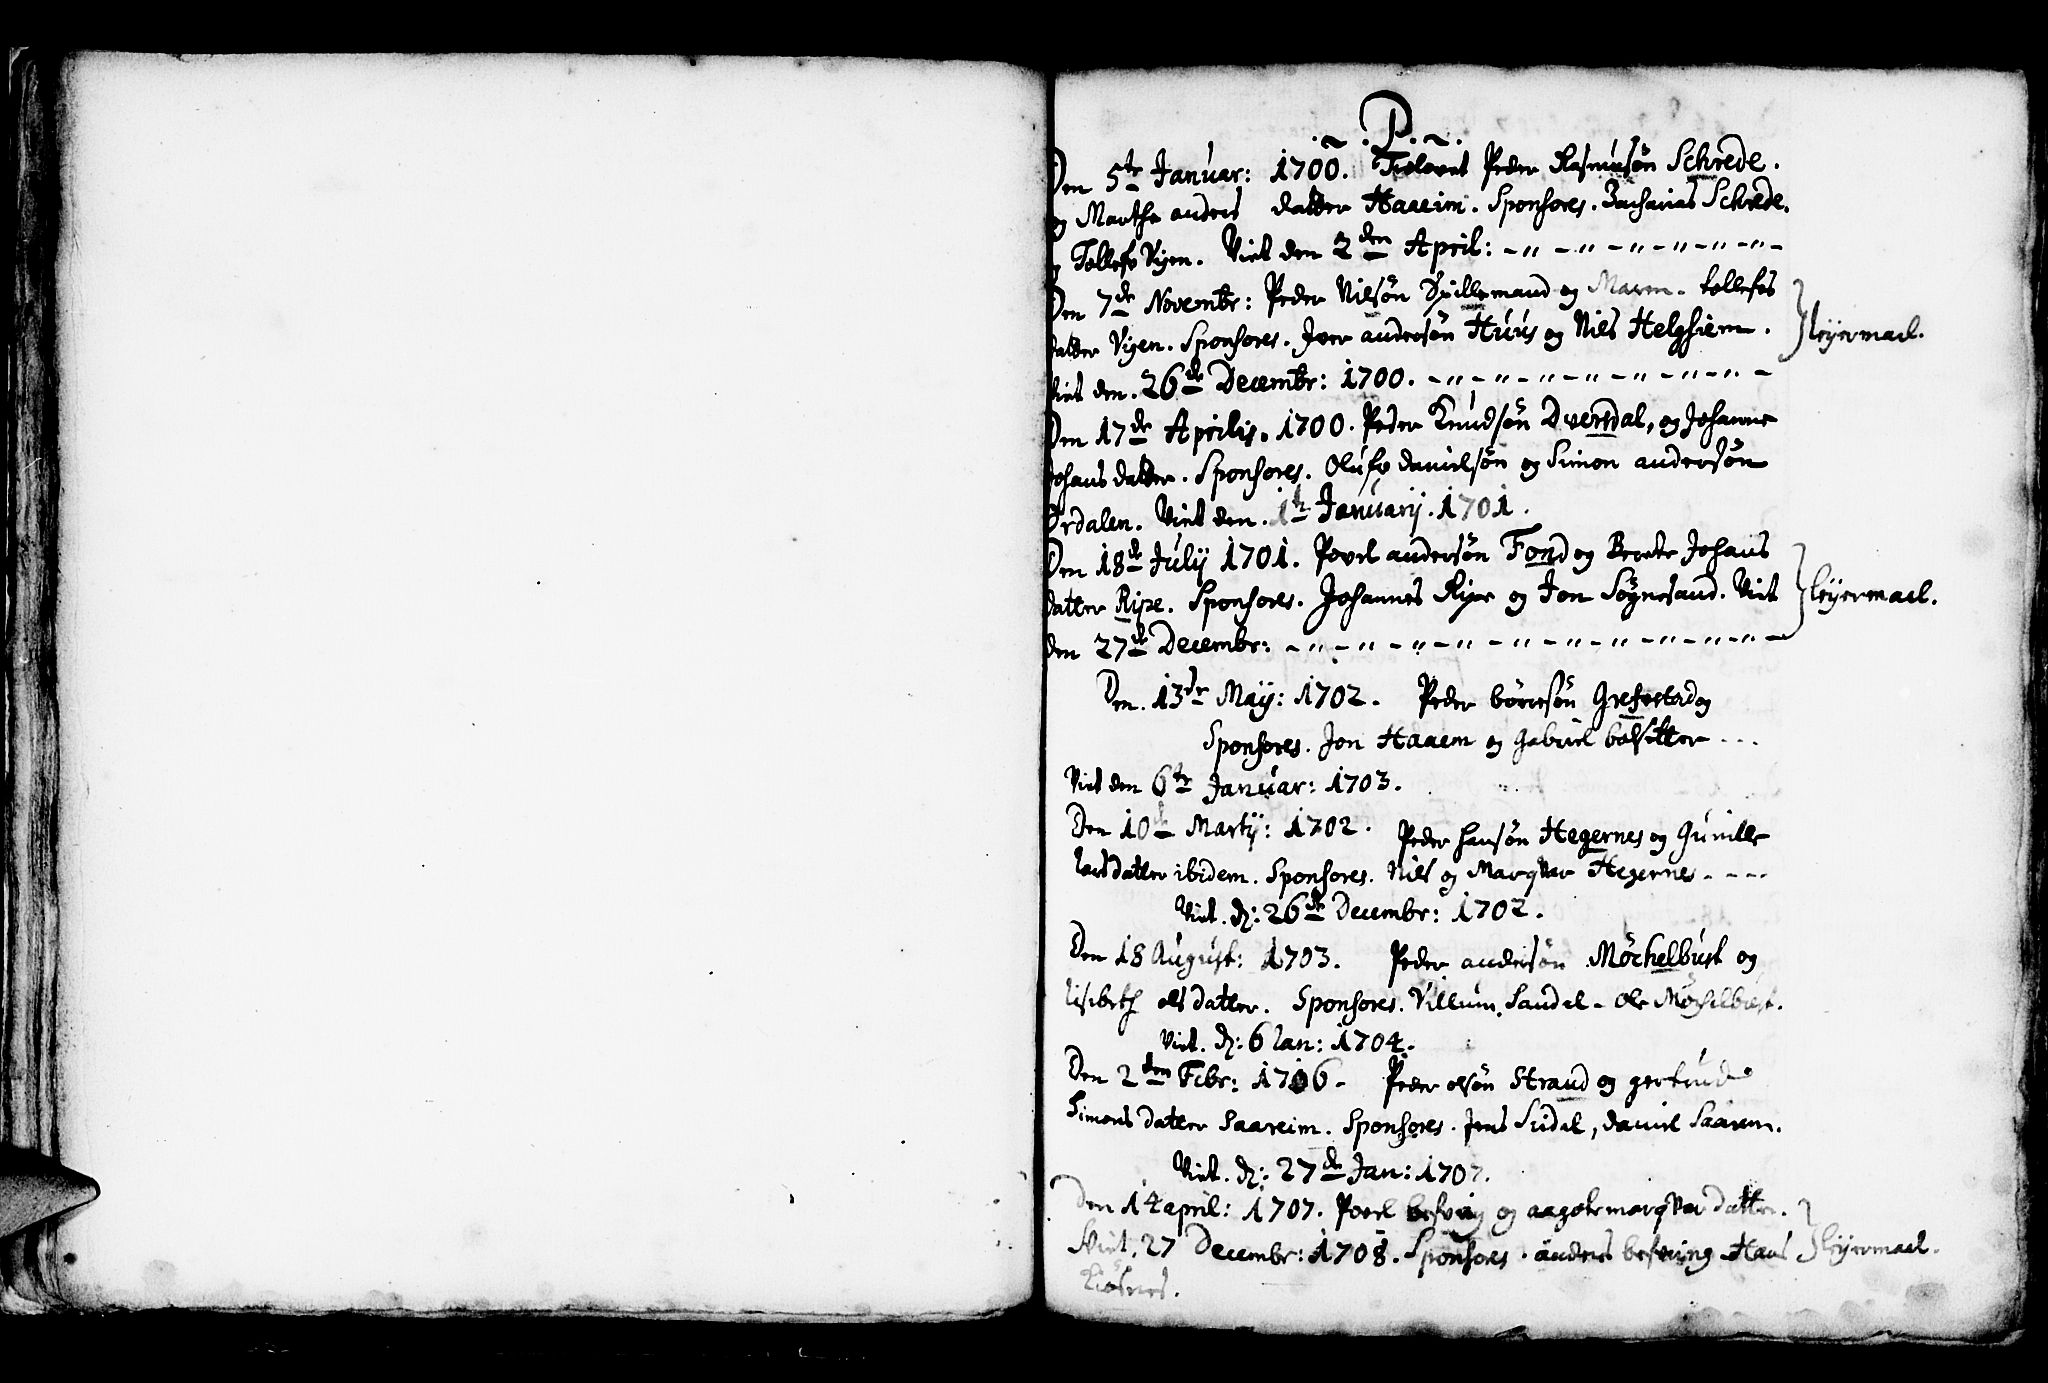 . ~ . P. ~ .
Den 5te Januar: 1700. Trolovet Peder Rasmusøn Schrede.
og Marthe anders datter Haaeim. Sponsores. Zacharias Schrede.
og Tollef Vigen. Viet den 2den April:
Den 7de Novembr: Peder Nilsøn Spillemand og Maren tollefs
datter Vigen. Sponsores. Iver andersøn Huus og Niels Helgsiem.
leyermael.
Viet den. 26de Decembr: 1700.
Den 17de Aprilis. 1700. Peder Knudsøn Dversdal, og Johanne
Johans datter. Sponsores. Oluf danielsøn og Simon andersøn
Ørdalen. Viet den. 1te Januarij. 1701.
Den 18de Julij 1701. Povel andersøn Fond og Berete Johans
datter Ripe. Sponsores. Johannes Ripe og Jon Søgnesand. Viet
leyermael.
den 27de Decembr:
Den. 13de Maij: 1702. Peder børresøn Grefestad og
Sponsores. Jon Haaem og Gabriel bolsetter
Viet den 6te Januar: 1703.
Den 10de Martij: 1702. Peder hansøn Hegernes og Gunille
lars datter ibidem. Sponsores. Niels og Marqvar Hegernes
Viet. d: 26de Decembr: 1702.
Den 18 August: 1703. Peder andersøn Møchelbust og
lisebeth ols datter. Sponsores. Villum Sandal - Ole Møchelbust.
Viet. d: 6 Jan: 1704.
Den 2den Febr: 1706. Peder olsøn Strand og gertrud
Simons datter Saareim. Sponsores. Jens Sidal, daniel Saarem.
Viet. d: 27de Jan: 1707.
Den 14 april: 1707. Povel befring og aagote marqvar datter.
Viet. 27 Decembr: 1708. Sponsores. anders befring Hans
leyermael.
Kiøsnes.